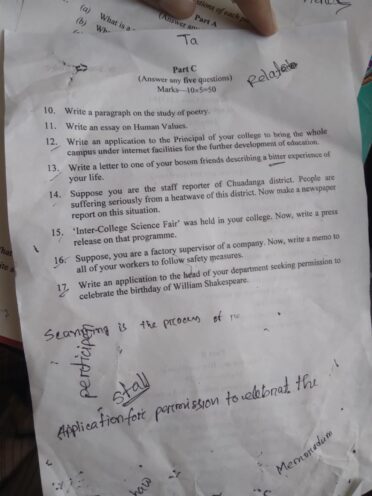 (a)
(b) What is a
Part A
(Answer any
Ta
Part C
(Answer any five questions)
Marks—10×5=50
10. Write a paragraph on the study of poetry.
11. Write an essay on Human Values.
12. Write an application to the Principal of your college to bring the whole
campus under internet facilities for the further development of education.
13. Write a letter to one of your bosom friends describing a bitter experience of
your life.
14. Suppose you are the staff reporter of Chuadanga district. People are
suffering seriously from a heatwave of this district. Now make a newspaper
report on this situation.
15. ‘Inter-College Science Fair’ was held in your college. Now, write a press
release on that programme.
16. Suppose, you are a factory supervisor of a company. Now, write a memo to
all of your workers to follow safety measures.
17. Write an application to the head of your department seeking permission to
celebrate the birthday of William Shakespeare.
is the process of
Stall
the
Memorandum